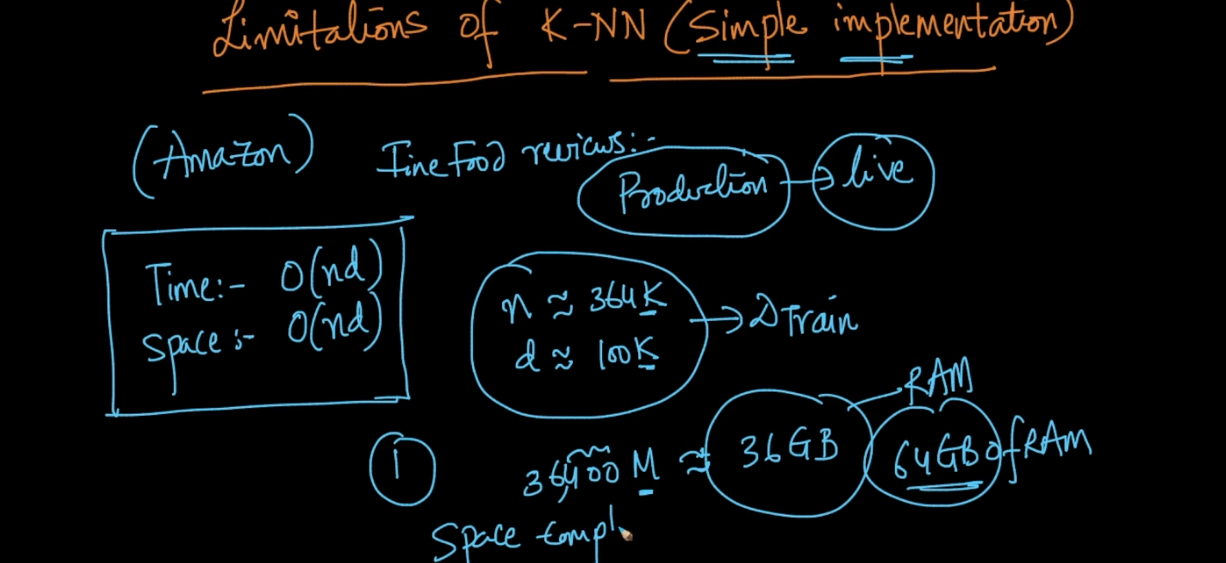 Limitations of K-NN (Simple implementation)
(Amazon) Fine Food reviews:-
Production → live
Time:- O(nd)
Space:- O(nd)
n ≈ 364K
d ≈ 100K
→ D Train
RAM
① 36,400 M ≈ 36GB 64GB of RAM
Space compl